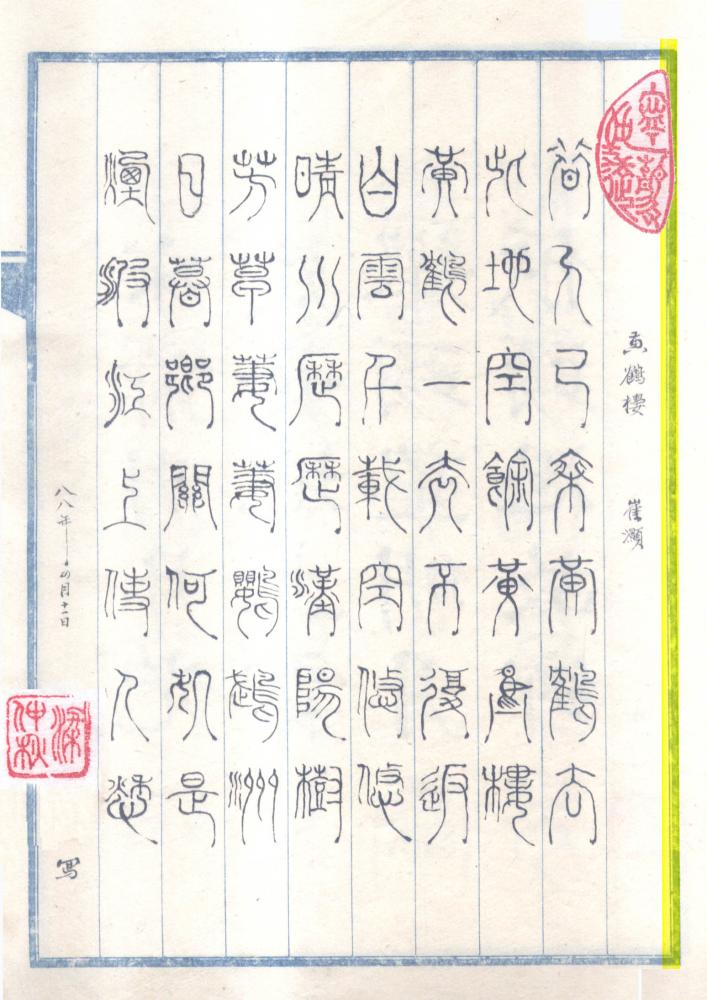 黃鶴樓 崔顥
昔人已乘黃鶴去
此地空餘黃鶴樓
黃鶴一去不復返
白雲千載空悠悠
晴川歷歷漢陽樹
芳草萋萋鸚鵡洲
日暮鄉關何處是
煙波江上使人愁
八八年四月十一日
梁仲秋
寫